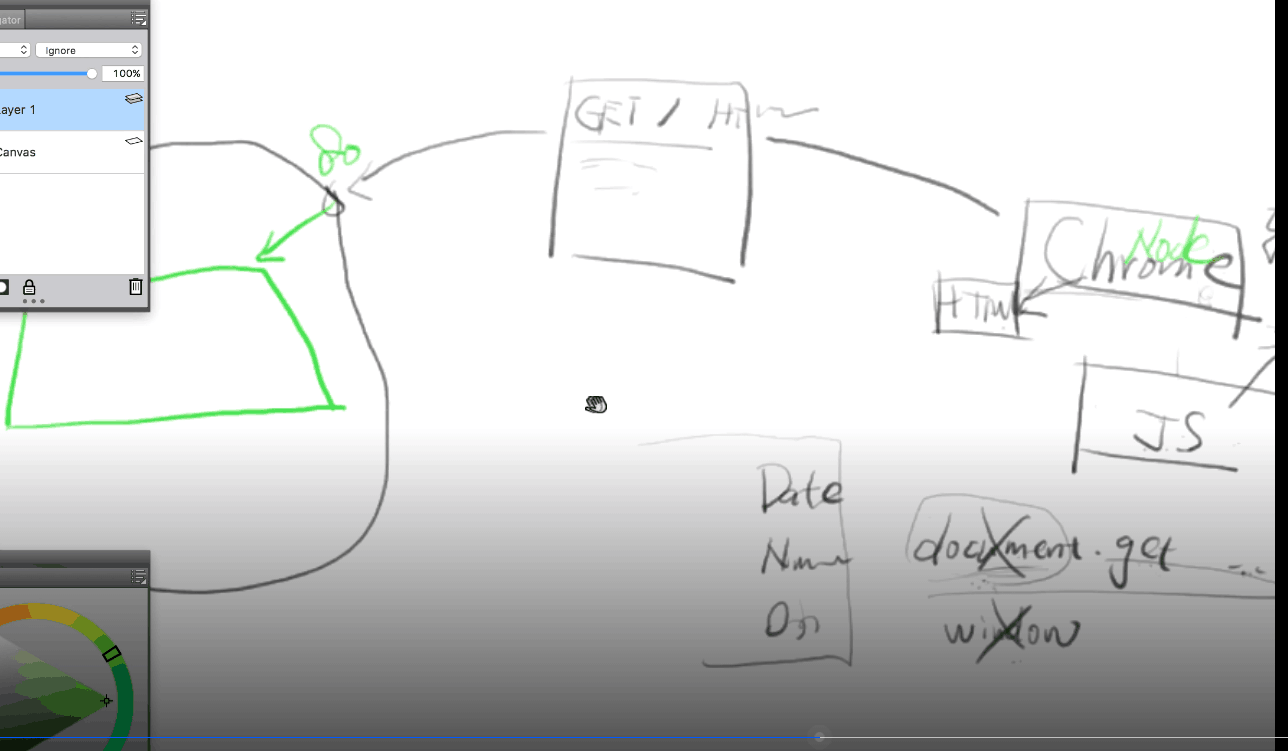 gator
Ignore
100%
ayer 1
Canvas
80
GET / HTM
Chrome
Node
HTM
JS
Date
document.get ...
window